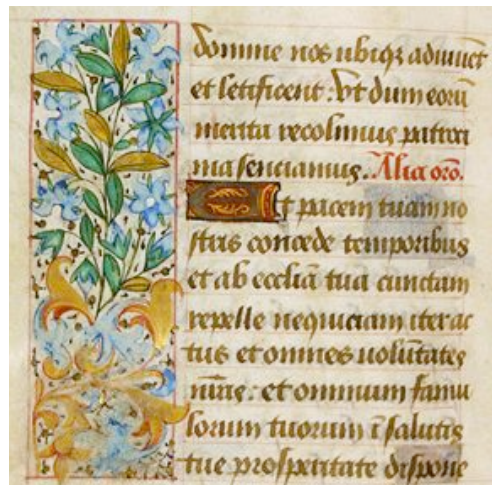 domine nos ubiqꝫ adiuuēt
et letificent: Vt dum eorū
merita recolimus patroci
nia senciamus. Alia oro̅.
Et pacem tuam no
stris concede temporibus
et ab ecclīā tua cunctam
repelle nequiciam iter ac
tus et omnes uolūtates
nr̄as: et omnium famu
lorum tuorum ī salutis
tue prosperitate dispone